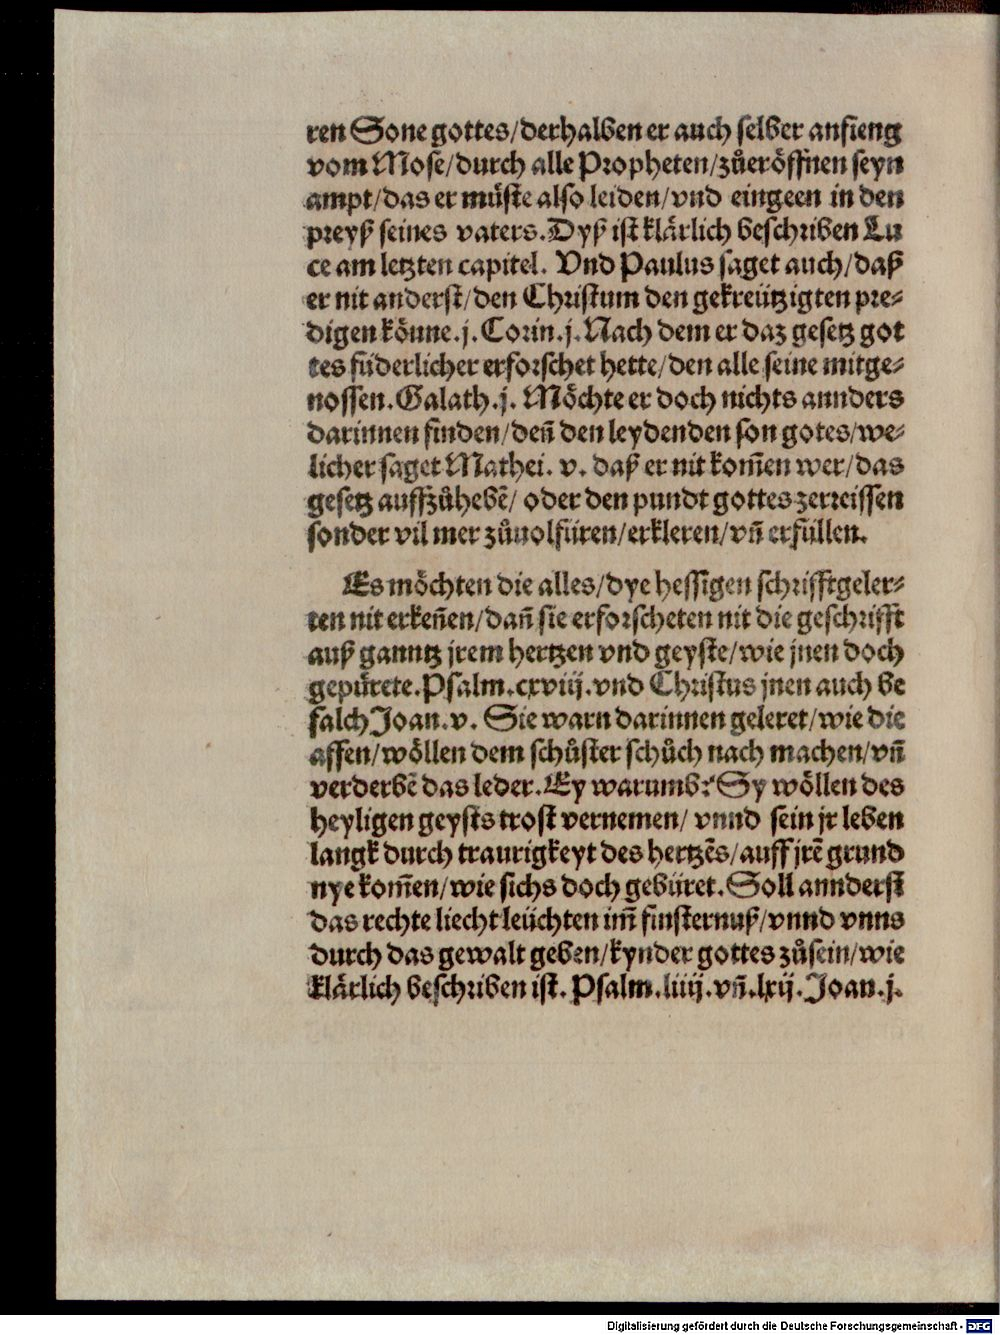 ren Sone gottes/derhalben er auch selber anfieng
vom Mose/durch alle Propheten/zůeröffnen seyn
ampt/das er müste also leiden/vnd eingeen in den
preyß seines vaters. Dyß ist klärlich beschriben Lu
ce am letzten capitel. Vnd Paulus saget auch/daß
er nit anderst/den Christum den gekreützigten pre-
digen könne. j. Corin. j. Nach dem er daz gesetz got
tes füderlicher erforschet hette/den alle seine mitge-
nossen. Galath. j. Möchte er doch nichts annders
darinnen finden/deñ den leydenden son gotes/we-
licher saget Mathei. v. daß er nit kom̃en wer/das
gesetz auffzůhebẽ/ oder den pundt gottes zerreissen
sonder vil mer zůuolfüren/erkleren/vñ erfüllen.
Es möchten die alles/dye hessigen schrifftgeler-
ten nit erkeñen/dañ sie erforscheten nit die geschrifft
auß ganntz jrem hertzen vnd geyste/wie jnen doch
gepürete. Psalm. cxviij. vnd Christus jnen auch be
falch Joan. v. Sie warn darinnen geleret/wie die
affen/wöllen dem schůster schůch nach machen/vñ
verderbẽ das leder. Ey warumb? Sy wöllen des
heyligen geysts trost vernemen/ vnnd sein jr leben
langk durch traurigkeyt des hertzẽs/auff jrẽ grund
nye kom̃en/wie sichs doch gebüret. Soll annderst
das rechte liecht leüchten im̃ finsternuß/vnnd vnns
durch das gewalt geben/kynder gottes zůsein/wie
klärlich beschriben ist. Psalm. liiij. vñ. lxij. Joan. j.
Digitalisierung gefördert durch die Deutsche Forschungsgemeinschaft - DFG